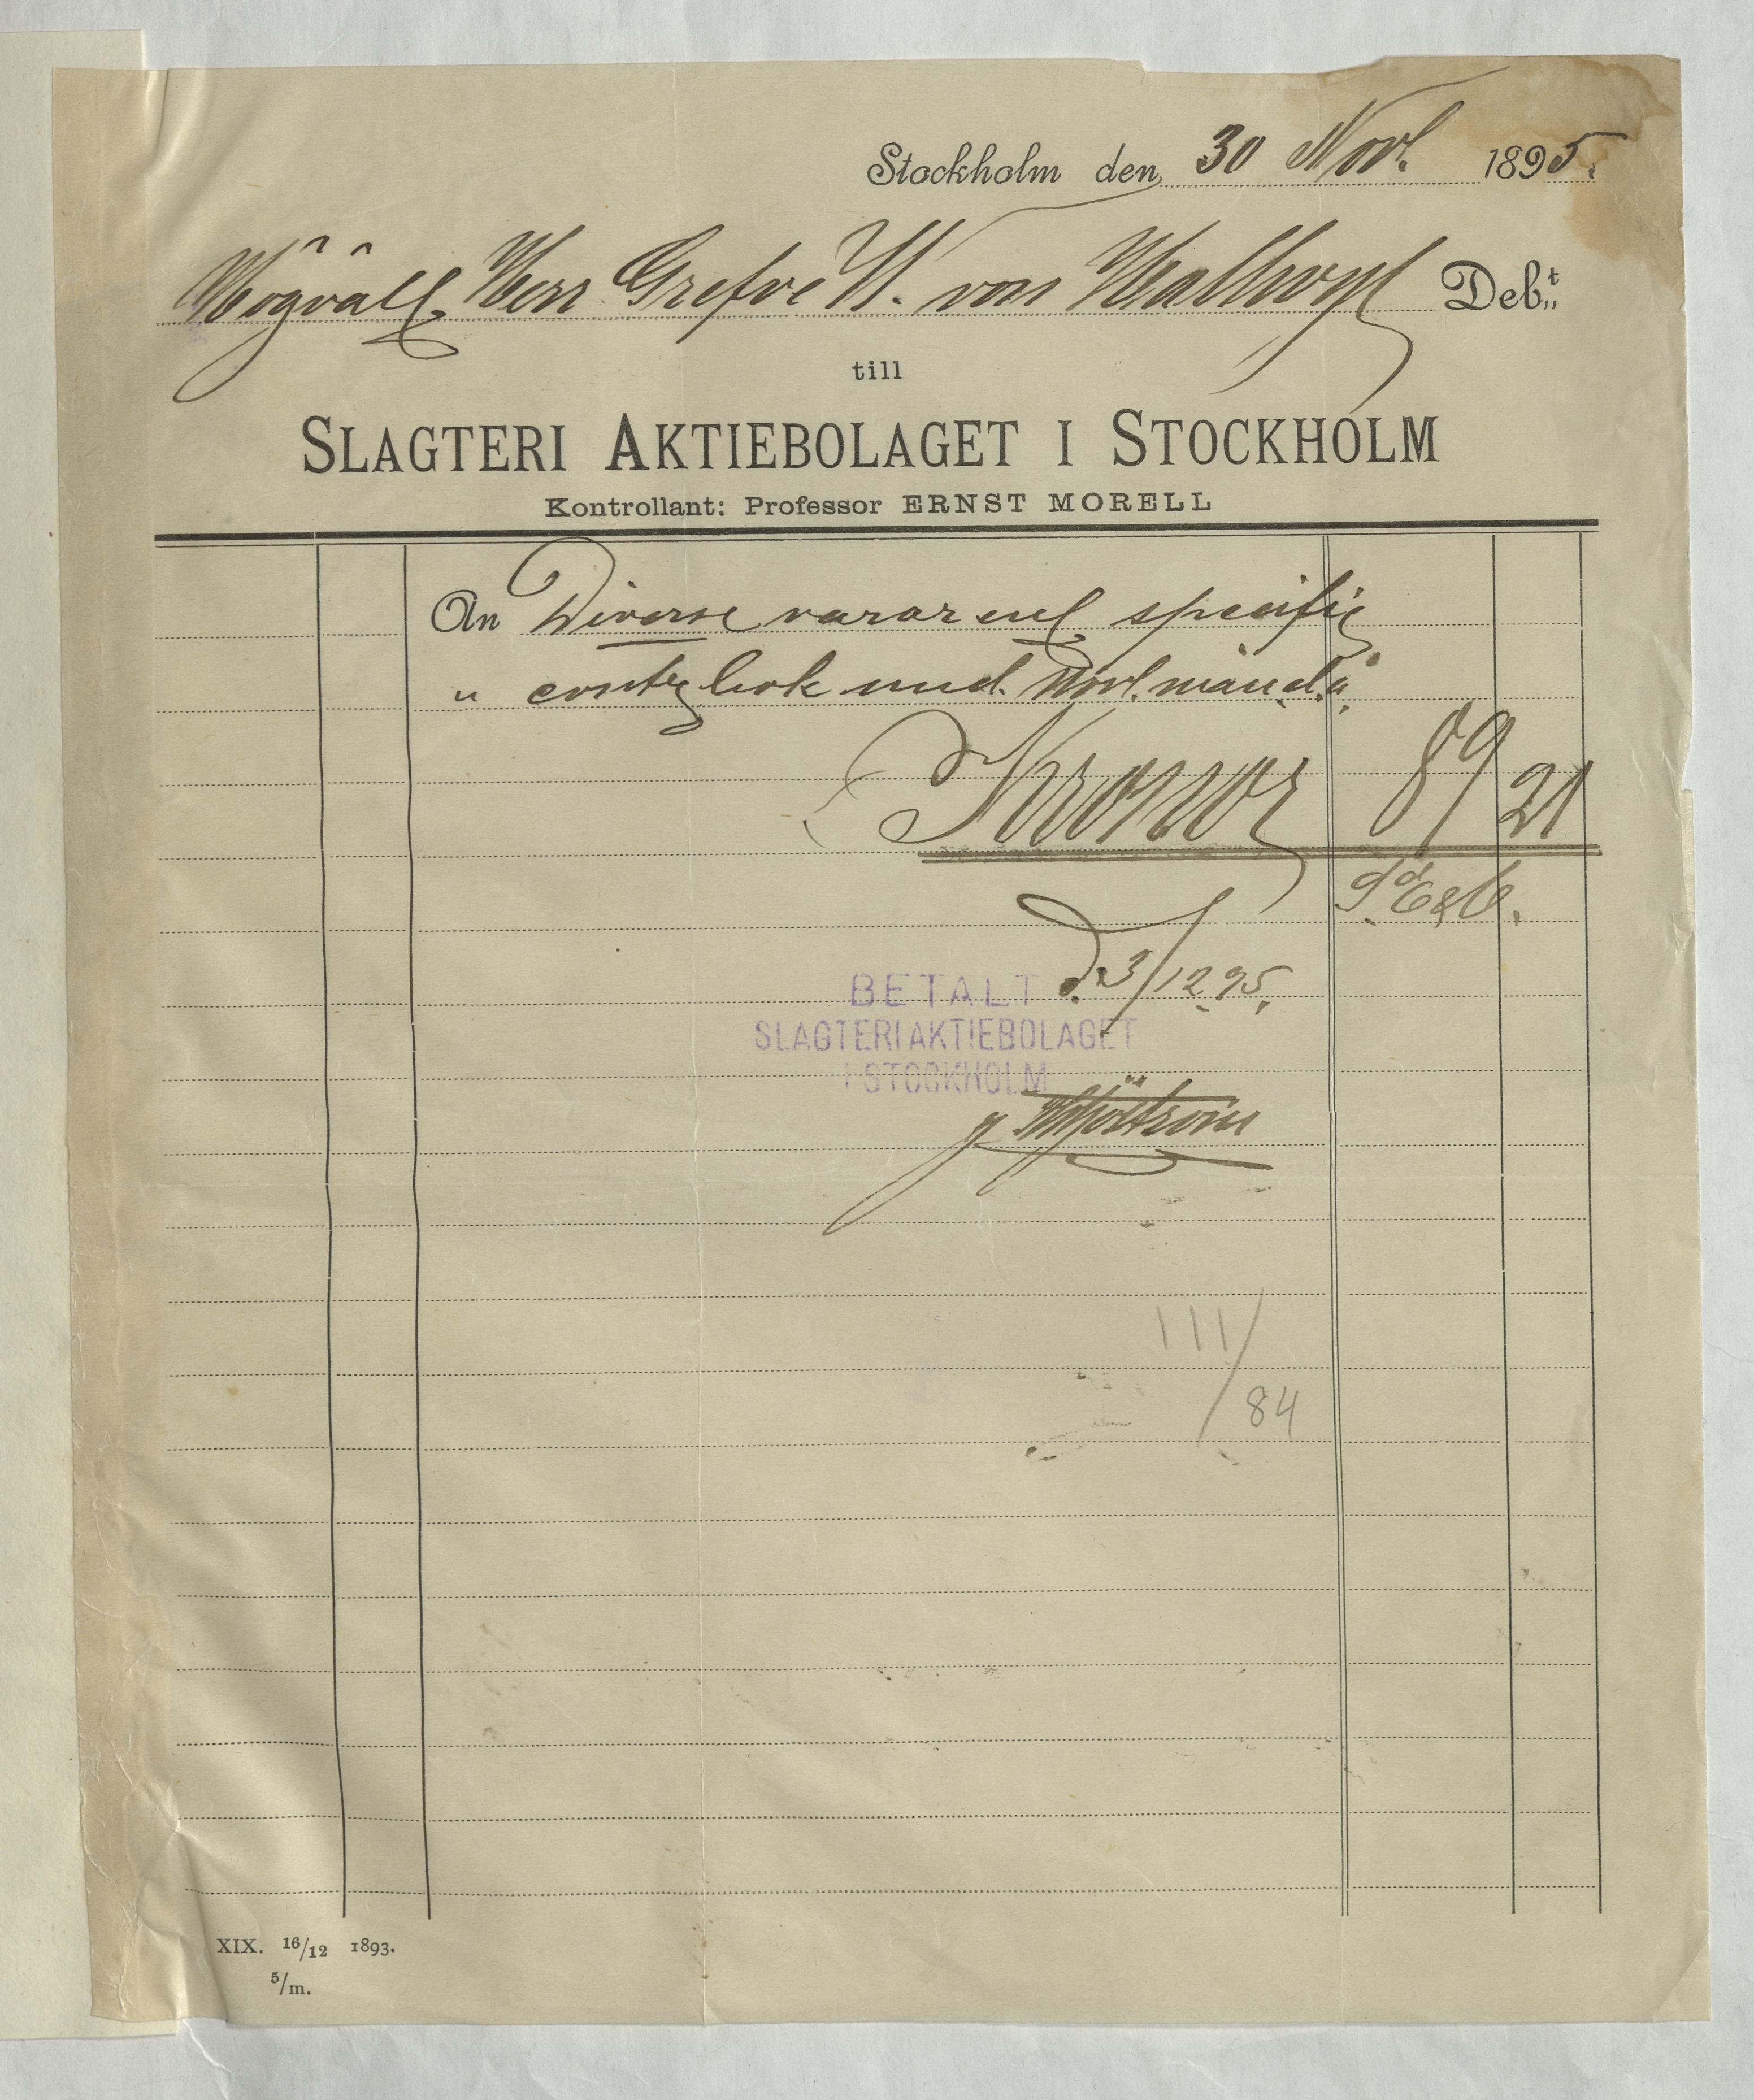 Stockholm den 30 Novb. 1895.
Högväll. Herr Grefve W. von Hallwyl Deb:t
till
SLAGTERI AKTIEBOLAGET I STOCKHOLM
Kontrollant: Professor ERNST MORELL
An Diverse varor enl. specific
" contra bok und. Novb. månad.
Kronor 89 21
S.d E & O.
d. 3/12 95.
BETALT
SLAGTERIAKTIEBOLAGET
I STOCKHOLM
111/84
XIX. 16/12 1893.
5/m.